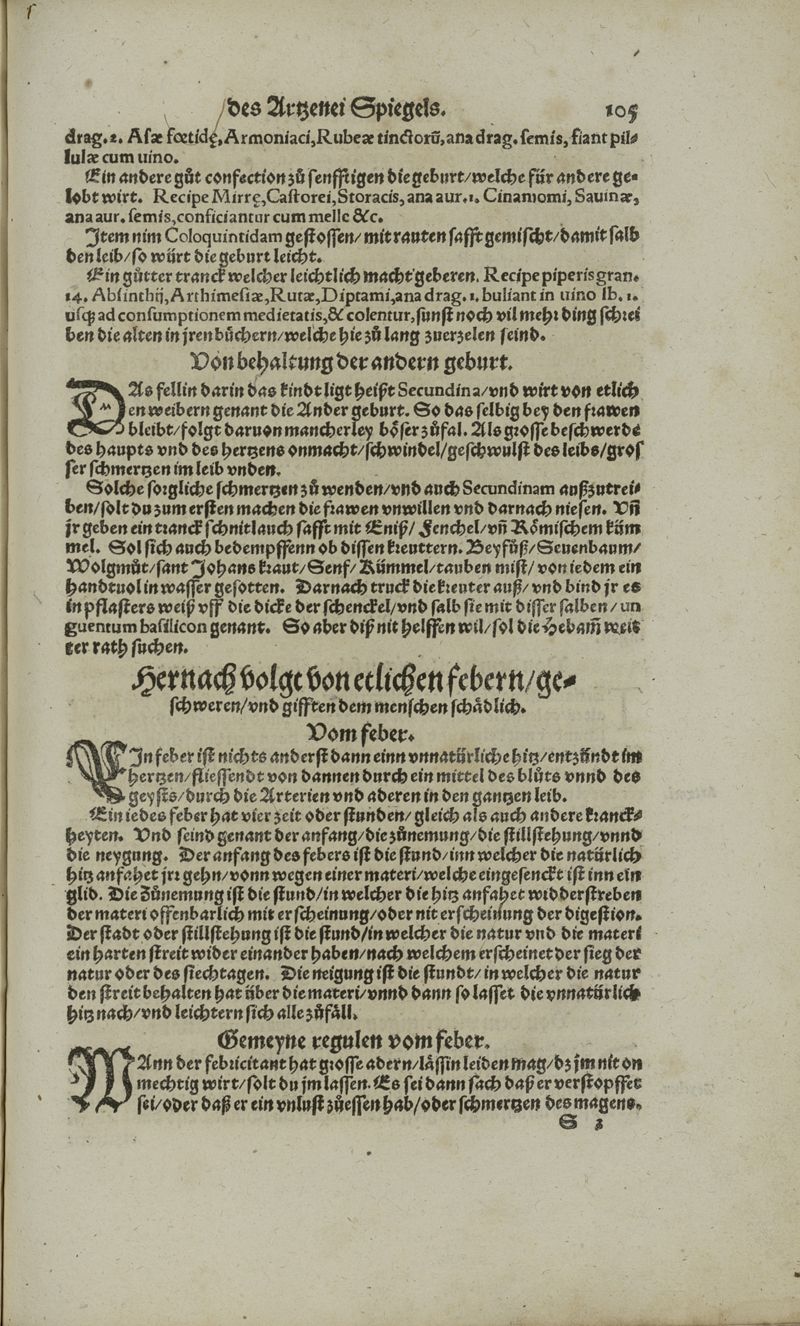 des Artzenei Spiegels. 105
drag.2. Asæ fœtidę, Armoniaci, Rubeæ tinctorũ, ana drag. semis, fiant pil⸗
lulæ cum uino.
Ein andere gůt confection zů senfftigen die geburt/welche für andere ge⸗
lobt wirt. Recipe Mirrę, Castorei, Storacis, ana aur.1. Cinamomi, Sauinæ,
ana aur. semis, conficiantur cum melle &c.
Item nim Coloquintidam gestossen/mit rauten safft gemischt/damit salb
den leib/so würt die geburt leicht.
Ein gůtter tranck welcher leichtlich macht geberen. Recipe piperis gran.
14. Absinthij, Arthimesiæ, Rutæ, Diptami, ana drag.1. buliant in uino lb.1.
usq; ad consumptionem medietatis, & colentur, sunst noch vil mehr ding schrei
ben die alten in jren bůchern/welche hie zů lang zuerzelen seind.
Von behaltung der andern geburt.
DAs fellin darin das kindt ligt heißt Secundina/vnd wirt von etlich
en weibern genant die Ander geburt. So das selbig bey den frawen
bleibt/folgt daruon mancherley böser zůfal. Als grosse beschwerde
des haupts vnd des hertzens onmacht/schwindel/geschwulst des leibs/gros
ser schmertzen im leib vnden.
Solche sorgliche schmertzen zů wenden/vnd auch Secundinam außzutrei⸗
ben/solt du zum ersten machen die frawen vnwillen vnd darnach niesen. Vñ
jr geben ein tranck schnitlauch safft mit Eniß/Fenchel/vñ Römischem küm
mel. Sol sich auch bedempffenn ob dissen kreuttern. Beyfůß/Seuenbaum/
Wolgmůt/sant Johans kraut/Senf/Kümmel/tauben mist/von iedem ein
handtuol in wasser gesotten. Darnach truck die kreuter auß/vnd bind jr es
in pflasters weiß vff die dicke der schenckel/vnd salb sie mit disser salben/un
guentum basilicon genant. So aber diß nit helffen wil/sol die Hebam̃ weit
ter rath suchen.
Hernach volgt von etlichen febern/ge⸗
schweren/vnd gifften dem menschen schädlich.
Vom feber.
EIn feber ist nichts anderst dann einn vnnatürliche hitz/entzündt im
hertzen/fliessendt von dannen durch ein mittel des blůts vnnd des
geysts/durch die Arterien vnd aderen in den gantzen leib.
Ein iedes feber hat vier zeit oder stunden/gleich als auch andere kranck⸗
heyten. Vnd seind genant der anfang/die zůnemung/die stillstehung/vnnd
die neygung. Der anfang des febers ist die stund/inn welcher die natürlich
hitz anfahet jrr gehn/vonn wegen einer materi/welche eingesenckt ist inn ein
glid. Die Zůnemung ist die stund/in welcher die hitz anfahet widderstreben
der materi offenbarlich mit erscheinung/oder nit erscheinung der digestion.
Der stadt oder stillstehung ist die stund/in welcher die natur vnd die materi
ein harten streit wider einander haben/nach welchem erscheinet der sieg der
natur oder des siechtagen. Die neigung ist die stundt/in welcher die natur
den streit behalten hat über die materi/vnnd dann so lasset die vnnatürlich
hitz nach/vnd leichtern sich alle zůfäll.
Gemeyne regulen vom feber.
WAnn der febricitant hat grosse adern/lässin leiden mag/dz jm nit on
mechtig wirt/solt du jm lassen. Es sei dann sach daß er verstopffet
sei/oder daß er ein vnlust zů essen hab/oder schmertzen des magens.
S 3